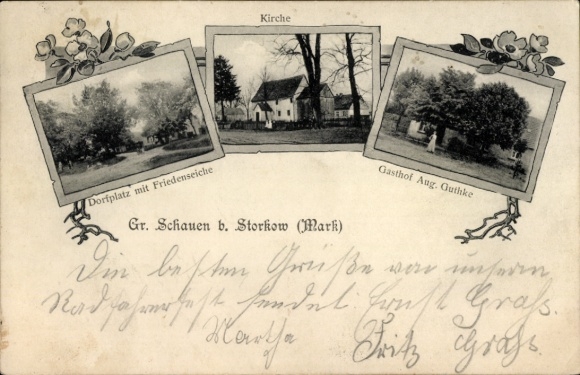 Kirche
Dorfplatz mit Friedenseiche
Gasthof Aug. Guthke
Gr. Schauen b. Storkow (Mark)
Die besten Grüße von unserem
Radfahrerfest sendet Ernst Graß.
Martha
Fritz Graß.